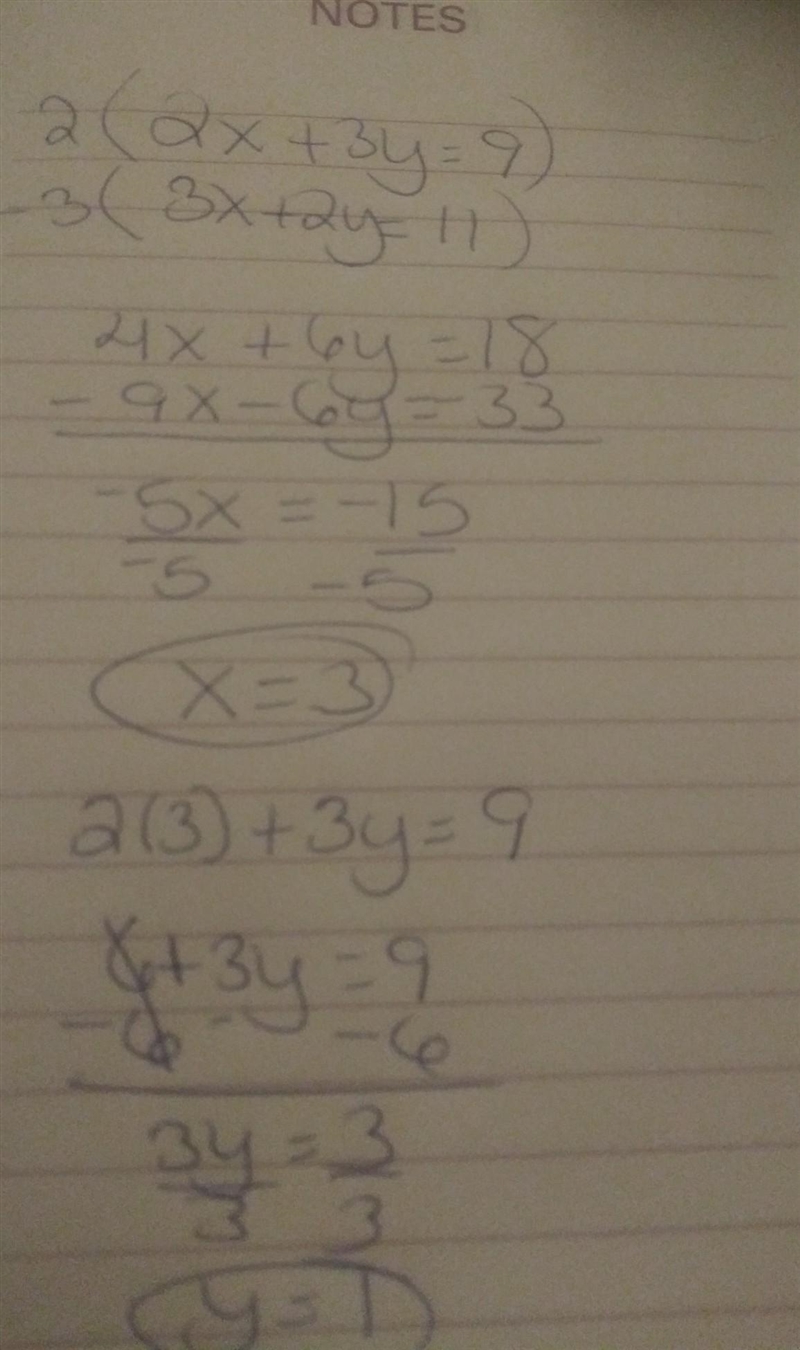 NOTES
2(2x+3y=9)
-3(3x+2y=11)
4x+6y=18
-9x-6y=-33
-5x=-15
-5 -5
x=3
2(3)+3y=9
6+3y=9
-6 - -6
3y=3
3 3
y=1